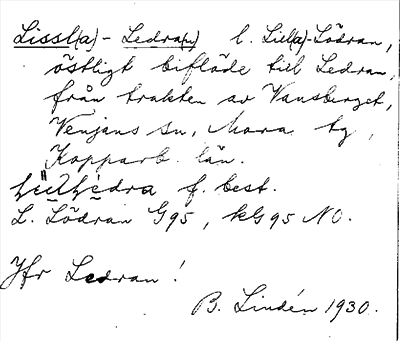 Lissl(a)-Ledra(n) l. Lisl(a)-Lödran,
östligt biflöde till Ledran,
från trakten av Vansberget,
Venjans sn, Mora tg,
Kopparb. län.
f. best.
L. Lödran G95, kG95 NO.
Jfr Ledran!
B. Lindén 1930.